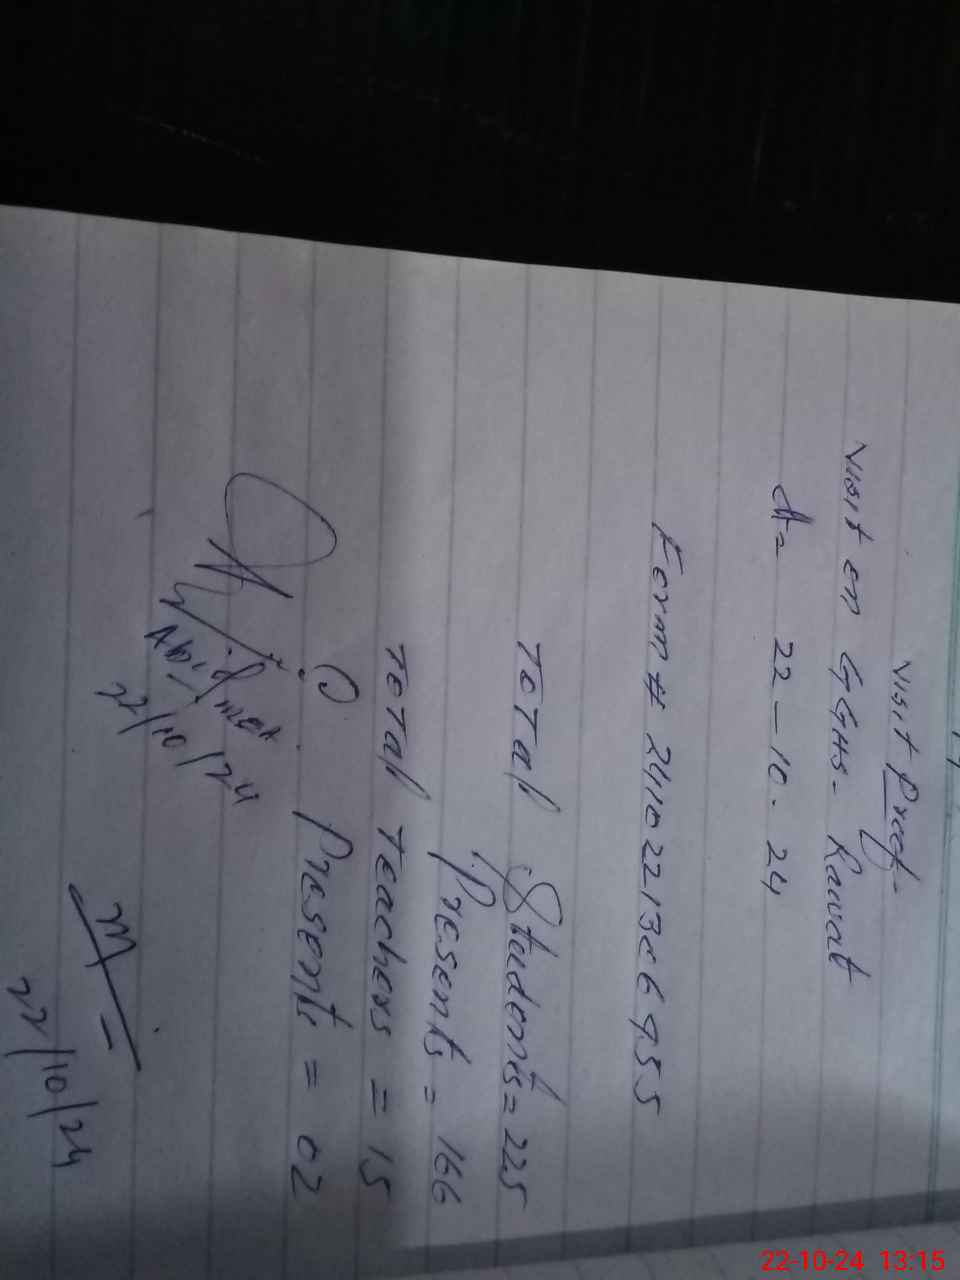 Visit Proof.
Visit on GGHS. Rawat
dt= 22-10.24
Form # 24102213e6955
Total Students = 225
Presents = 166
Total teachers = 15
Presents = 02
Abid
22/10/24
22/10/24
22-10-24 13:15